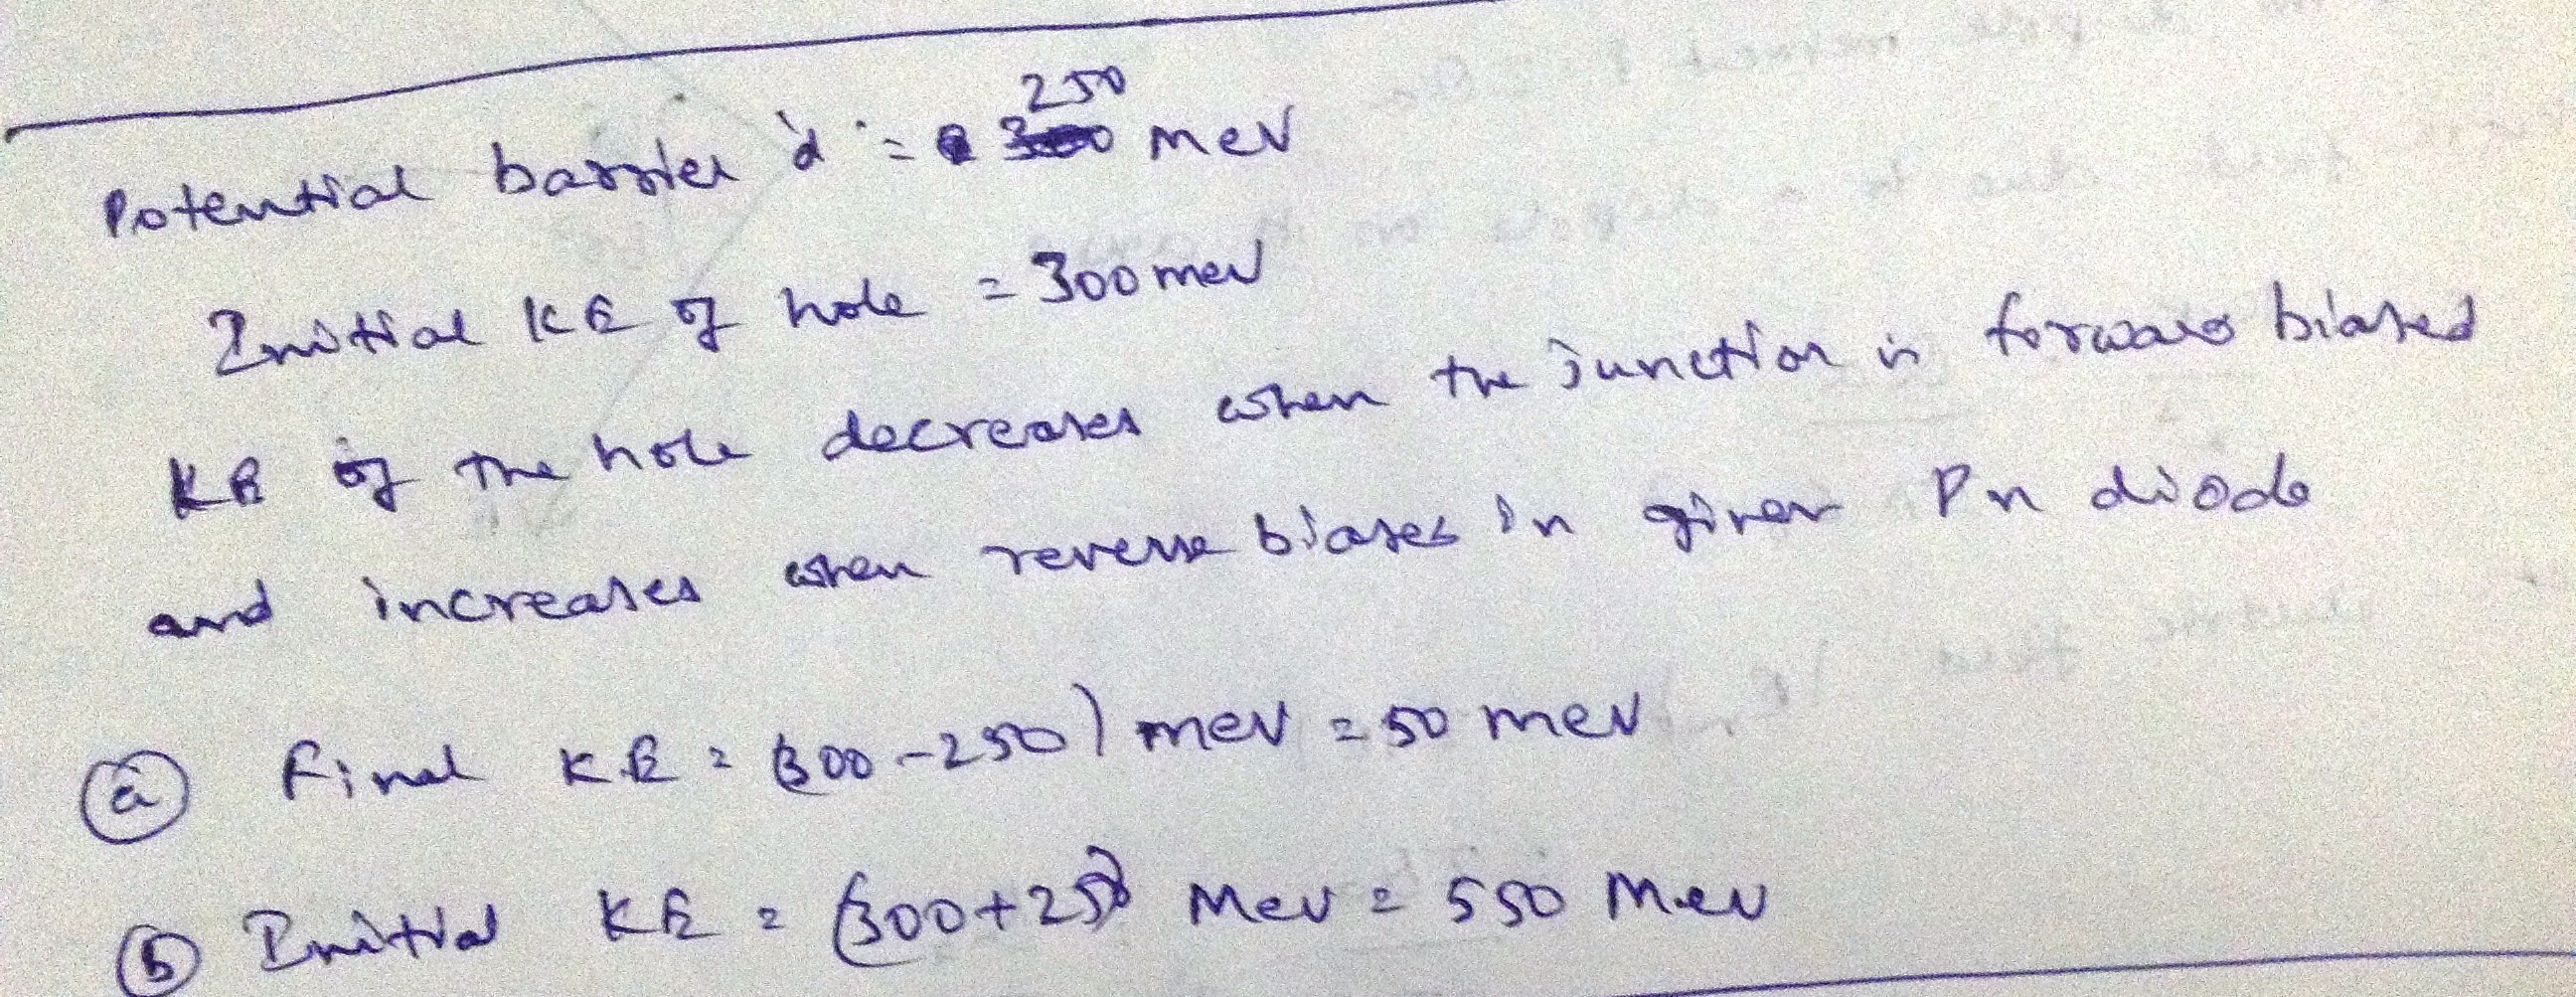 250
Potential barrier d = 300 mev
Initial KE of hole = 300 mev
KE of the hole decreases when the junction is forward biased
and increases when reverse biased in given Pn diode
(a) Final K.E = (300-250) mev = 50 mev
(b) Initial KE = (300+250) Mev = 550 Mev